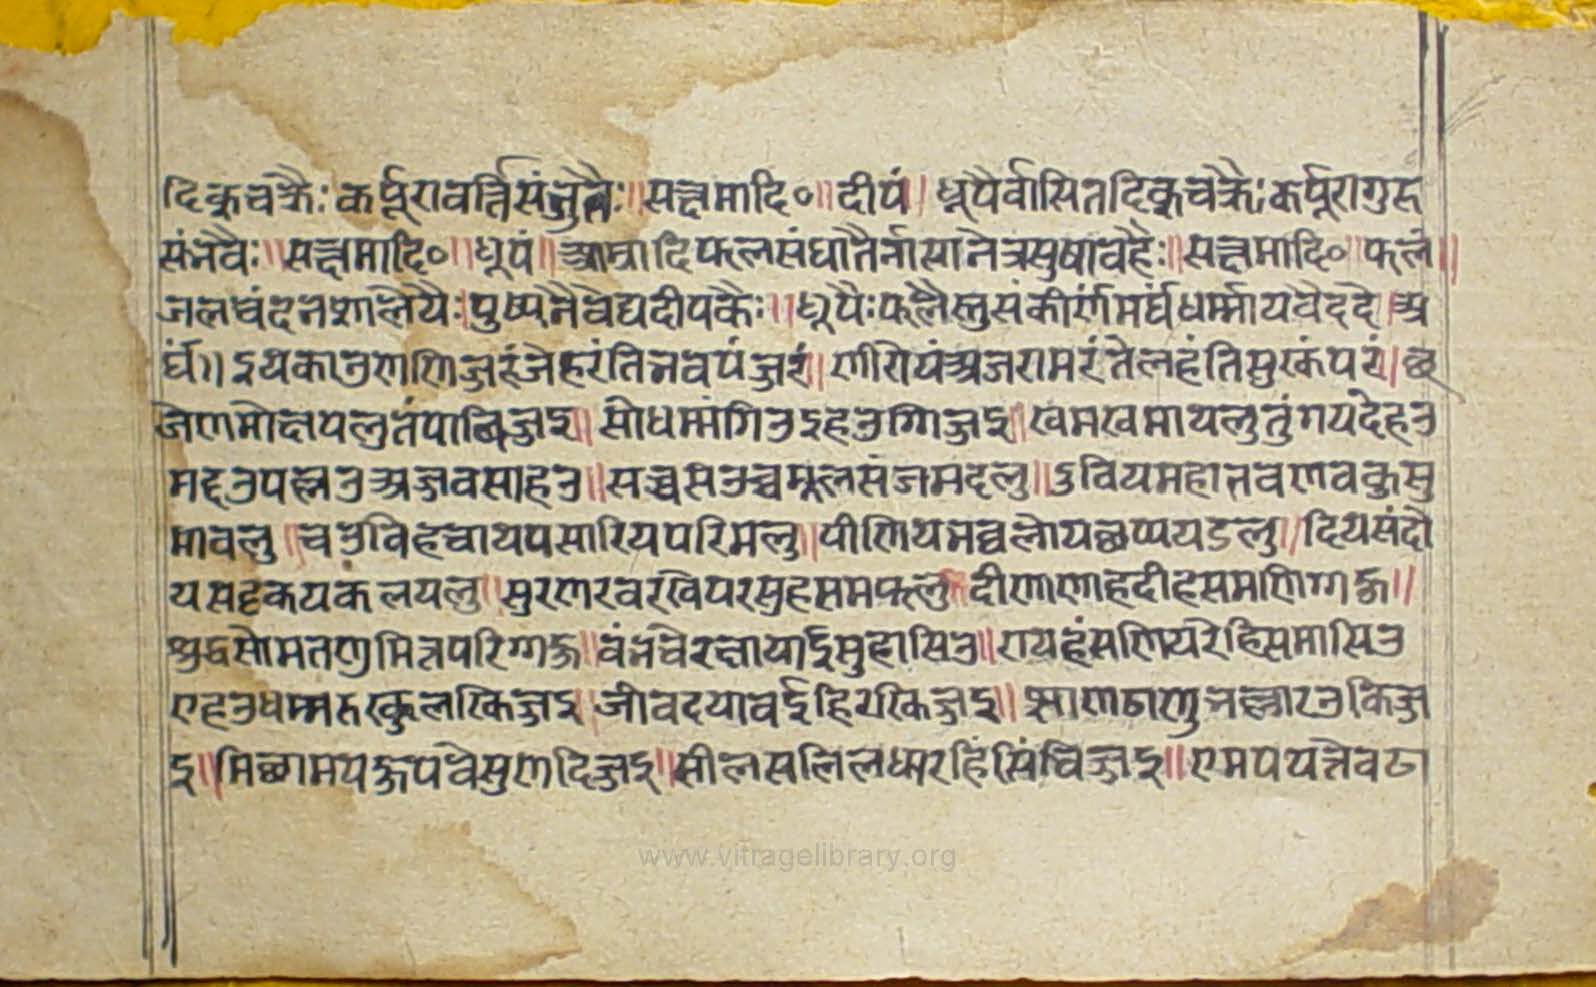 दिक्चक्रैः कर्पूरावर्त्तिसंजुतैः॥सत्क्षमादि०॥दीपं। धूपैर्वासितदिक्चक्रैः कर्पूरागुरु
संभवैः॥सत्क्षमादि०॥धूपं॥आम्रादिफलसंघातैर्नासानेत्रसुषावहैः॥सत्क्षमादि०॥फलं॥
जलचंदनशालेयैः।पुष्पनैवेद्यदीपकैः॥धूपैःफलैस्तुसंकीर्णमर्घंधर्म्मायवैददे।अ
र्घं॥इयकाउणणिज्जरंजेहरंतिभवपंजरं।णीरोयंअजरामरंतेलहंतिसुरकंपरं।छ
जेणमोक्षपलुतंपाविज्जइ॥सोधम्मंगिउइहउग्गिज्जइ॥खमखमायलुतुंगयदेहउ
मद्दउपल्लउअज्जवसाहउ॥सच्चसउच्चमूलसंजमदलु॥उवियमहातवणवकुसु
मावलु॥चउविहचायपसारियपरिमलु॥पीणियभव्वलोयछप्पयउलु॥दियसंदो
यसद्दकयकलयलु॥सुरणरवरखेयरसुहसमफलु॥दीणाणाहदीहसमणिग्गहु॥
शुद्धसोमतणुमित्तपरिग्गहु॥वंभचेरछायाइसुहासिउ॥रायहंसणियरेहिसमासिउ
एहउधम्मरुरकुलरकिज्जइ॥जीवदयावईहिररकिज्जइ॥झाणठाणुभल्लारउकिज्ज
इ॥मिछामयहुपवेसुणदिज्जइ॥सीलसलिलधारहिंसिंचिज्जइ॥एमपयत्तेवठा
www.vitragelibrary.org